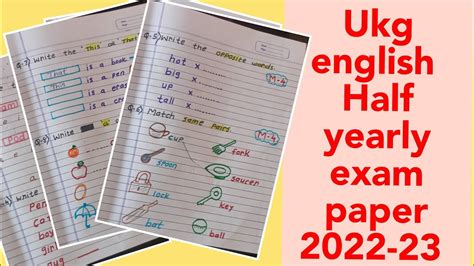 Q.7) Write the 'This' or 'That'
That is a book
This is a pen
is an
is a cra
is
Q.8) Write 'a'
Write
Pen
Ca
boy
girl
mug
Q.5) Write the opposite words.
hot x
big x
up x
tall x
M-4
Q.6) Match same Pairs.
M-4
cup
fork
spoon
saucer
lock
key
bat
ball
Ukg
english
Half
yearly
exam
paper
2022-23